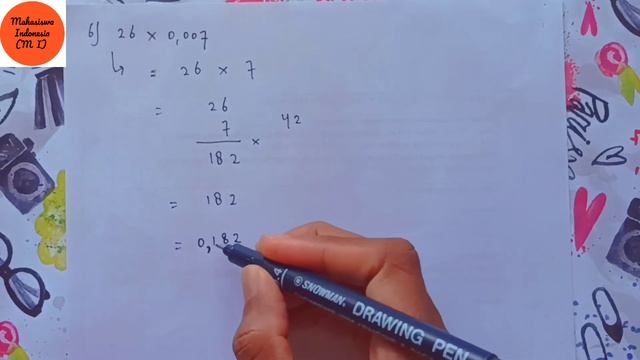 Mahasiswa
Indonesia
(M I)
6) 26 × 0,007
↳ = 26 × 7
= 26
7 × 42
182
= 182
= 0,182
SNOWMAN. DRAWING PEN